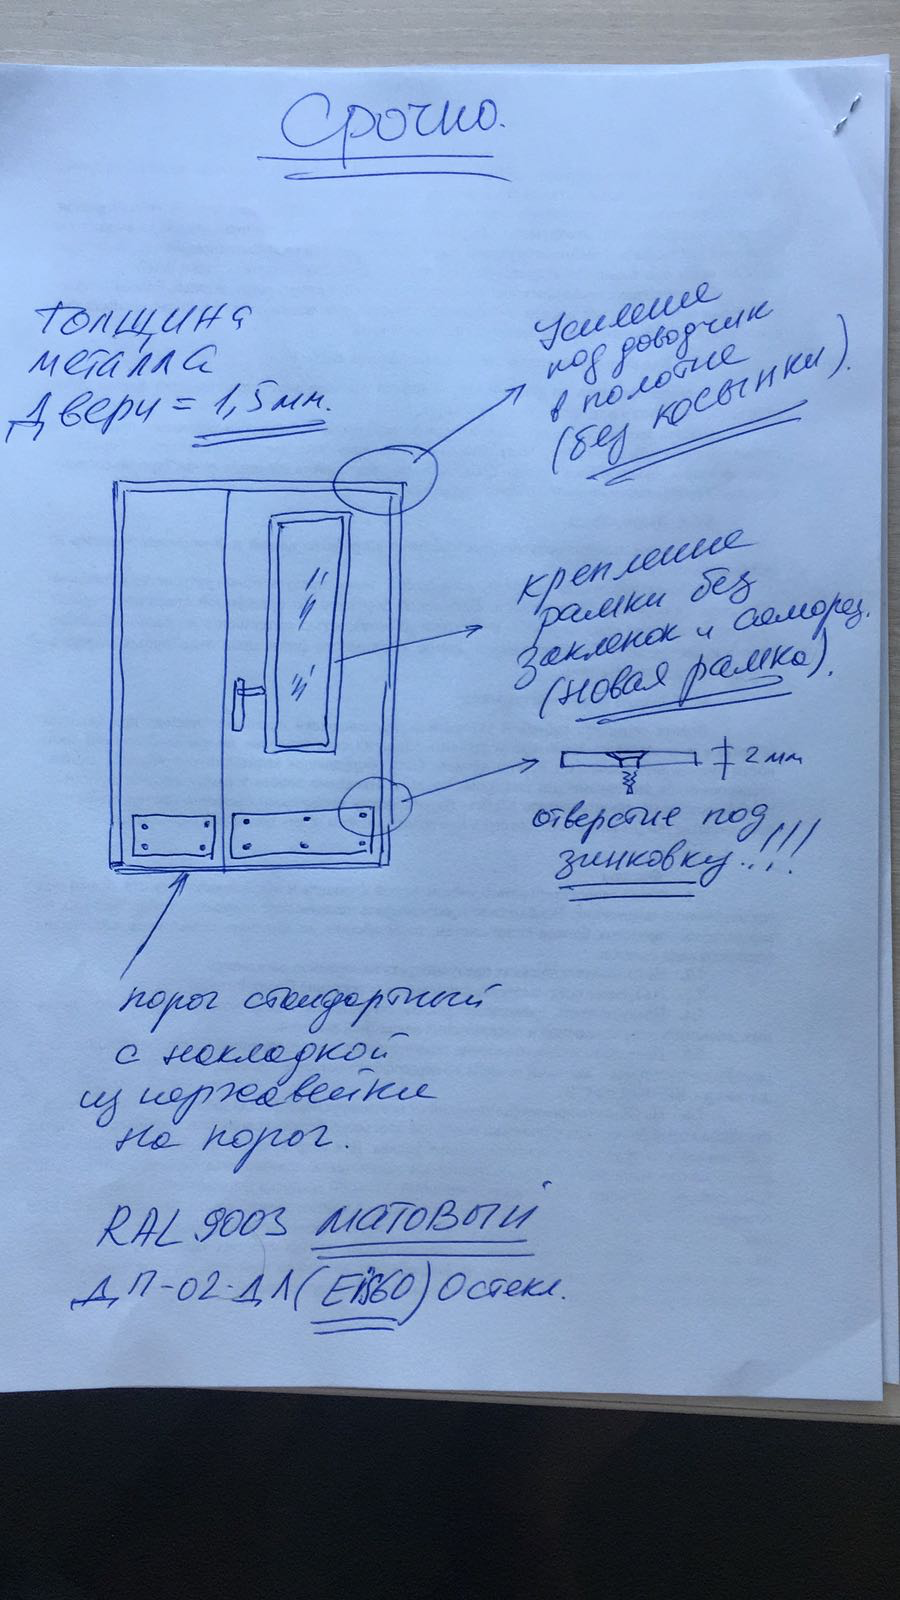 Срочно.
толщина
металла
двери = 1,5мм.
Усиление
под доводчик
в полотне
(без косынки).
крепление
рамки без
заклепок и саморез.
(новая рамка).
2 мм
отверстие под
зинковку...!!!
порог стандартный
с накладкой
из нержавейки
на порог.
RAL 9003 матовый
ДП-02-ДЛ( 60) Остекл.